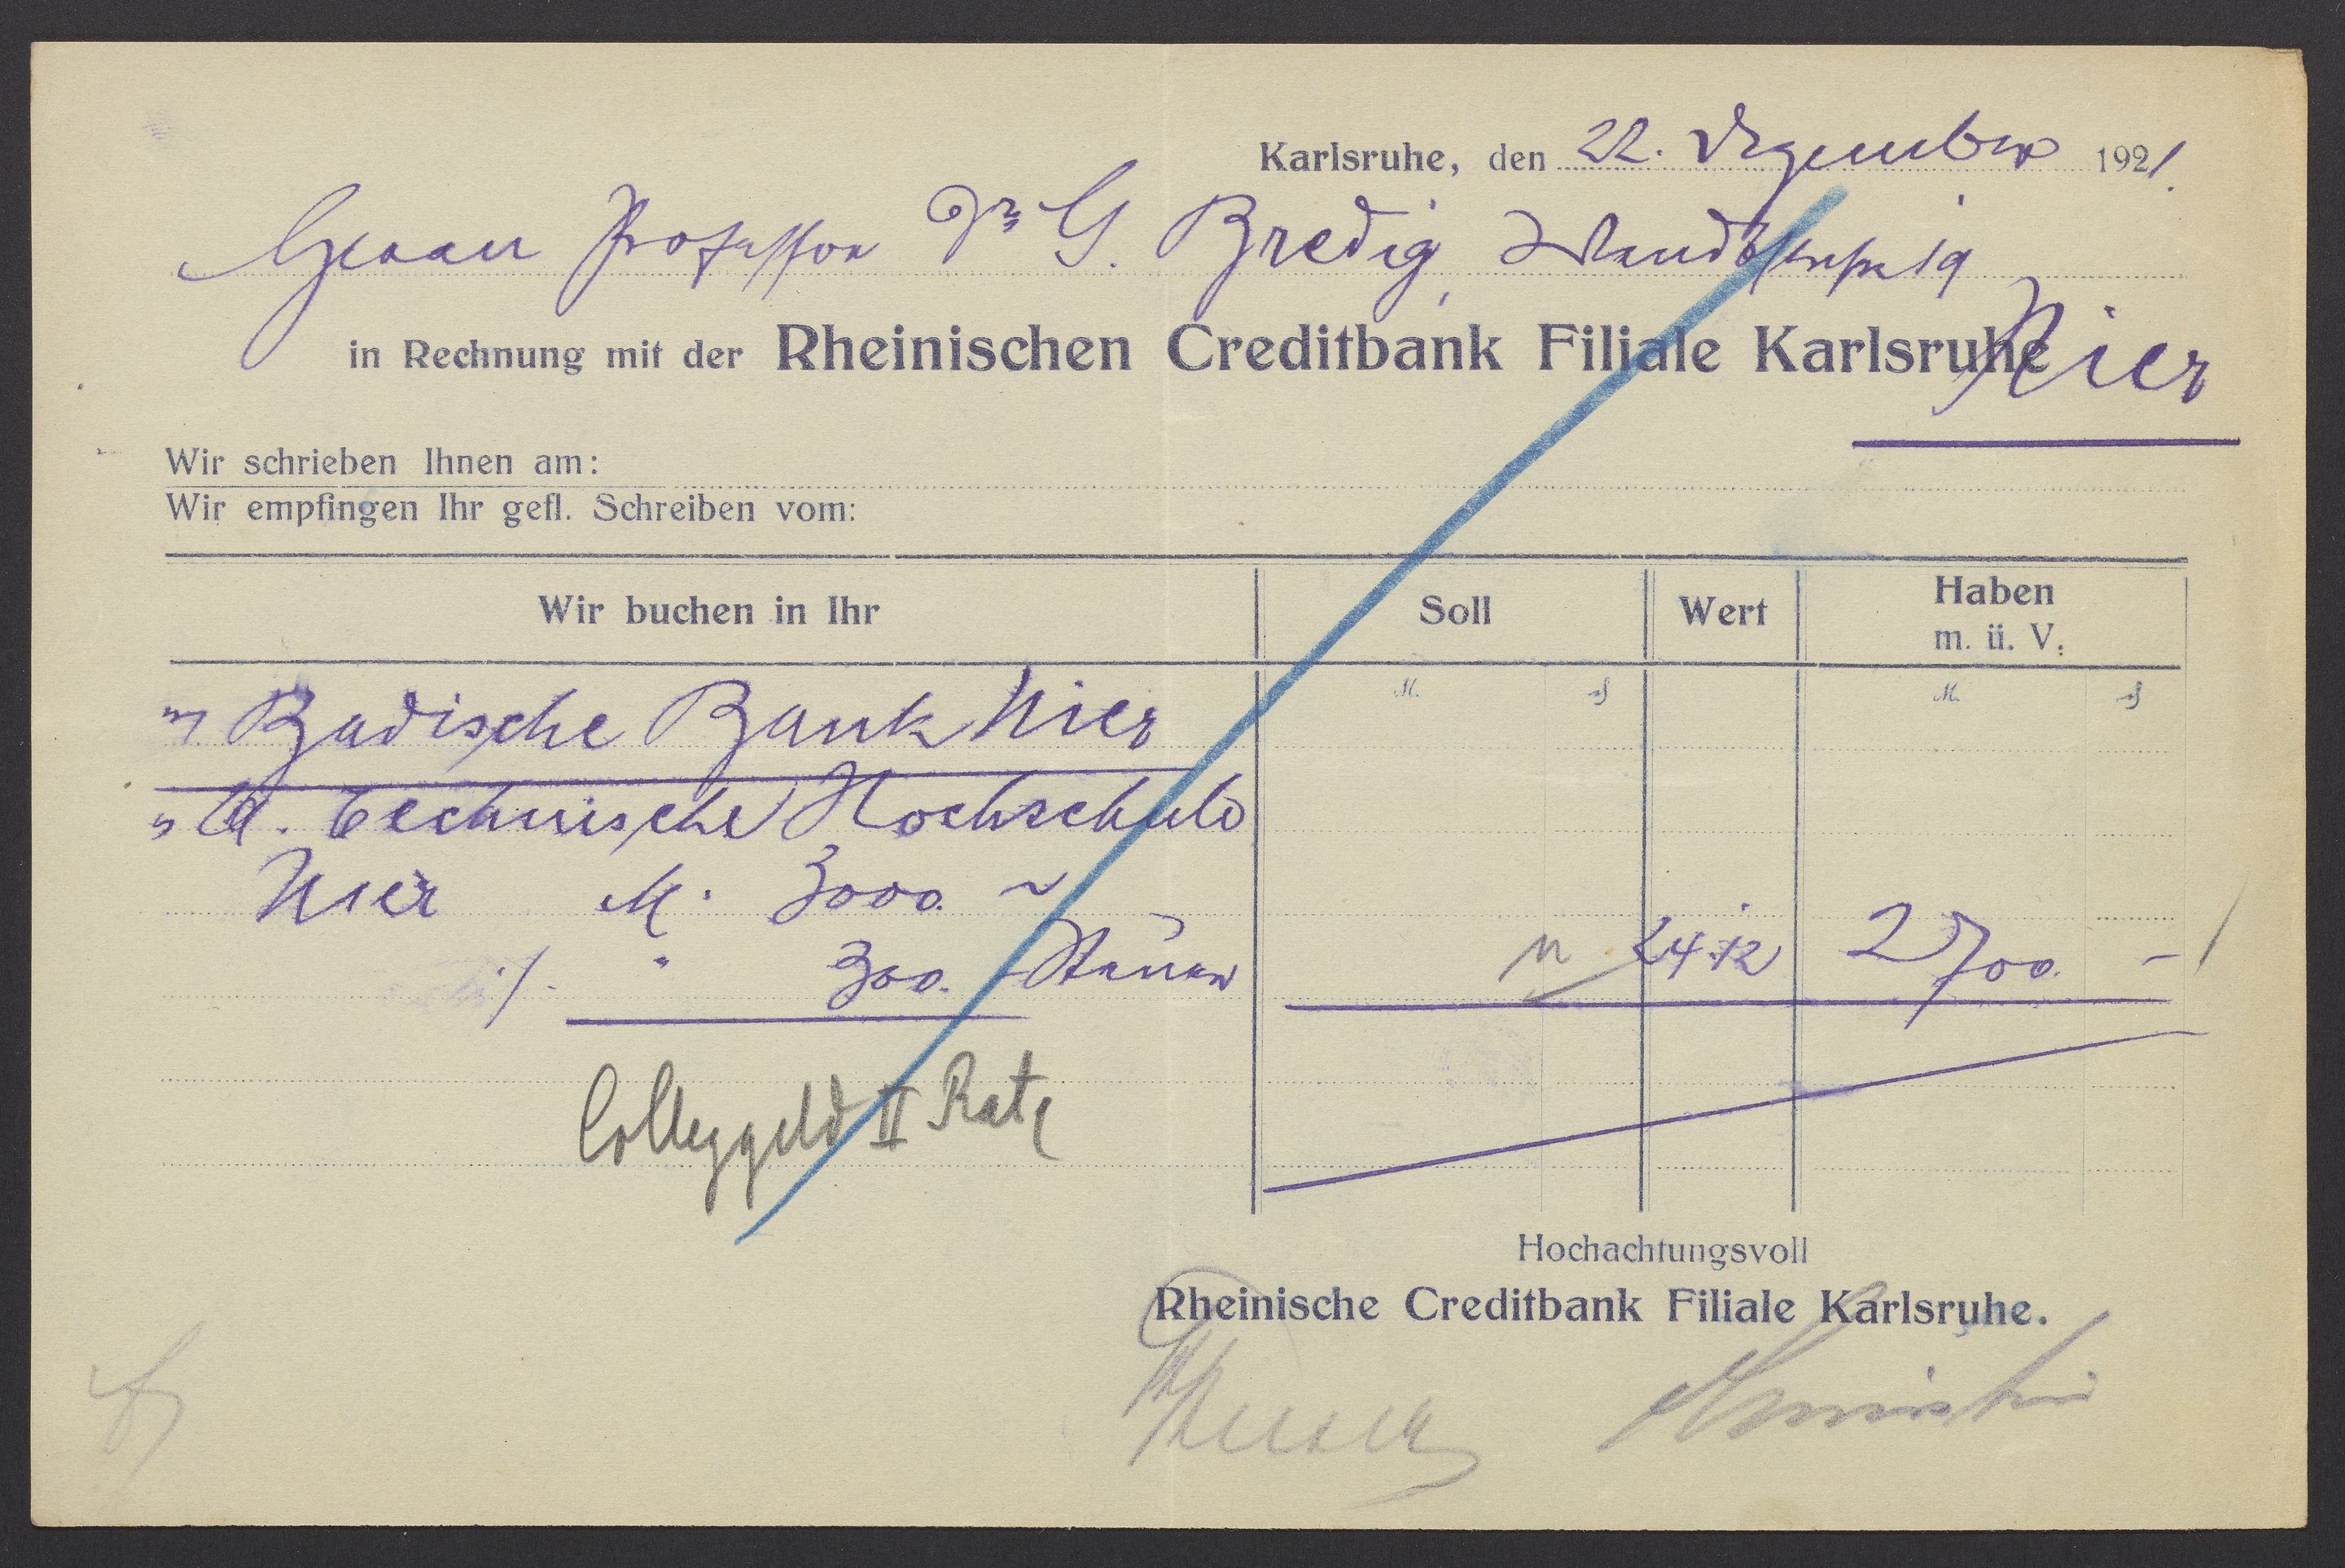 Karlsruhe, den 22. Dezember 1921.
Herrn Professor Dr G. Bredig,
in Rechnung mit der Rheinischen Creditbank Filiale Karlsruhe
Hier
Wir schrieben Ihnen am:
Wir empfingen Ihr gefl. Schreiben vom:
Wir buchen in Ihr Soll Wert Haben
m. ü. V.
M. ₰ M. ₰
Badische Bank Hier
Technische Hochschule
Hier M. 3000. –
./. " 300. – Steuer 24.12 2700. –
Colleggeld II Rate
Hochachtungsvoll
Rheinische Creditbank Filiale Karlsruhe.